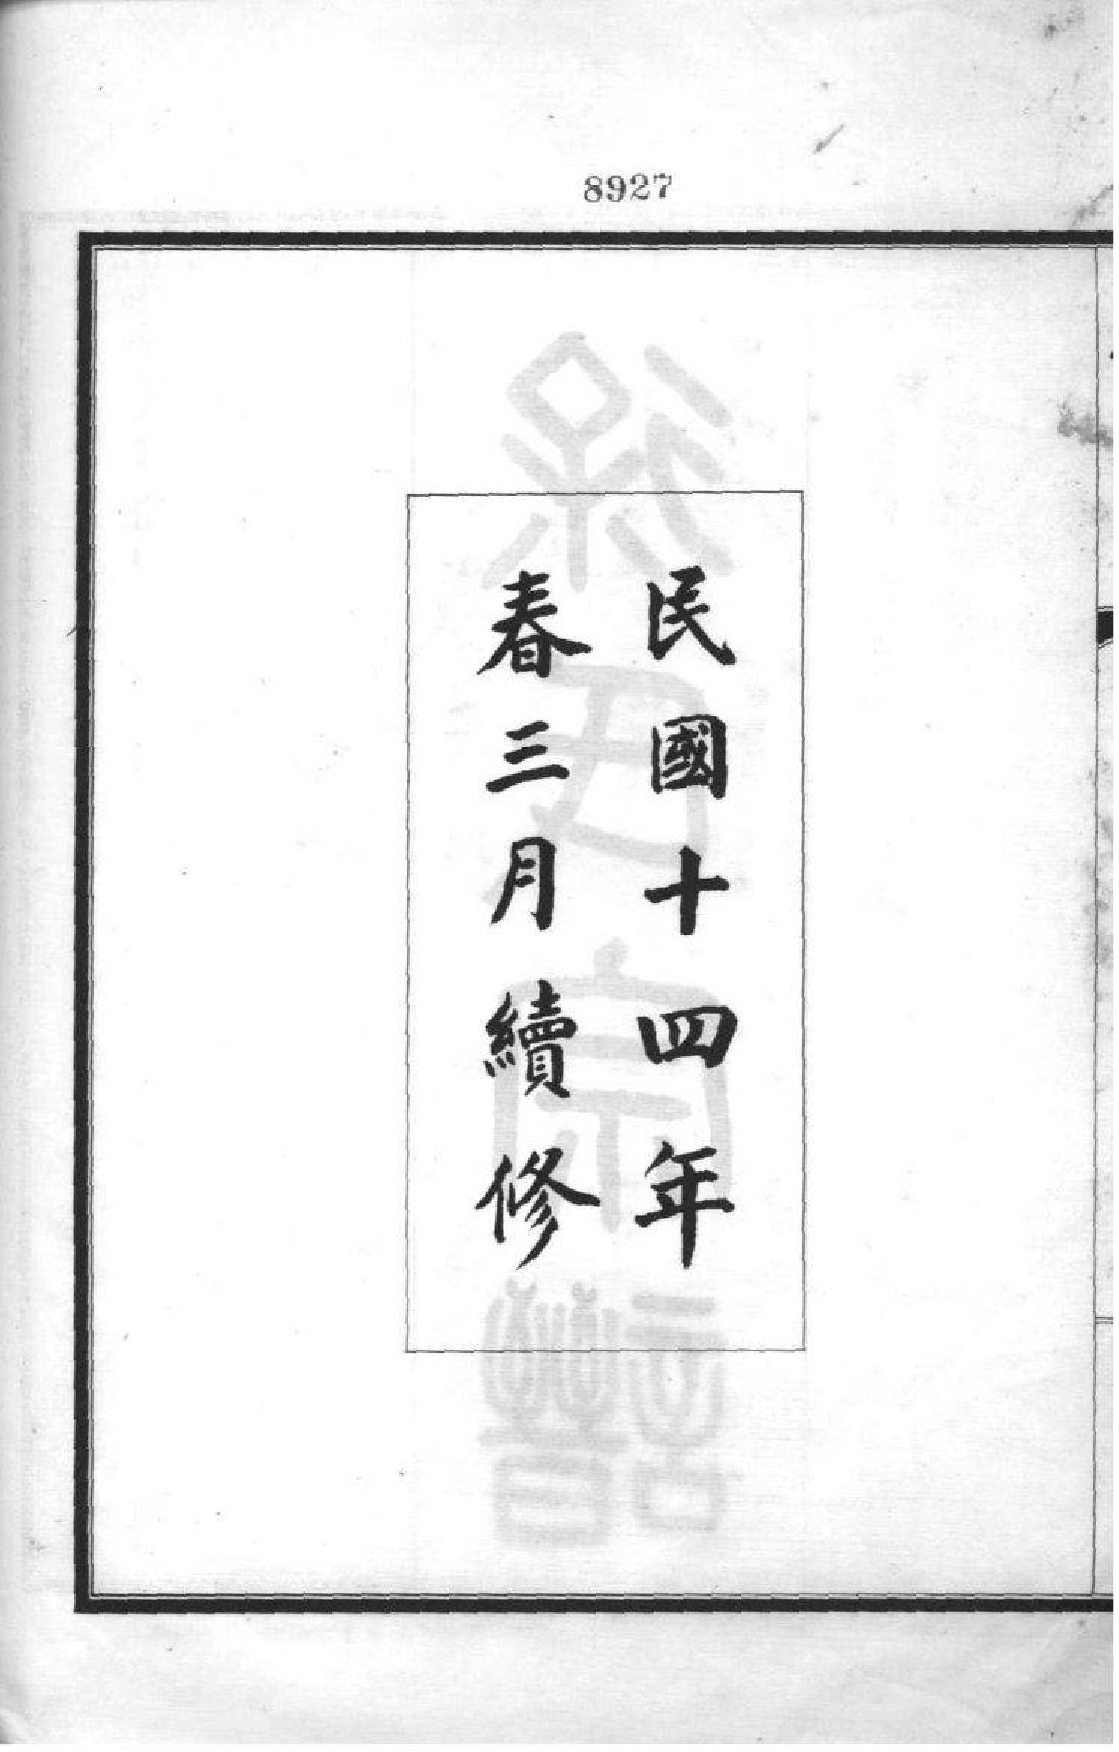 8927
民國十四年
春三月續修